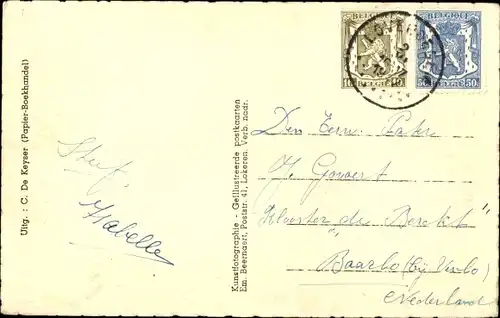 BELGIQUE
BELGIQUE
10 BELGIE 10
50 BELGIE 50
Uitg. : C. De Keyser (Papier-Boekhandel)
Stef.
Isabelle
Kunstfotographie - Geïllustreerde postkaarten
Em. Beernaert, Poststr. 41, Lokeren. Verb. nadr.
Den Eerw. Pater
J. Govaert
Klooster "de Berckt"
Baarlo (bij Venlo)
Nederland